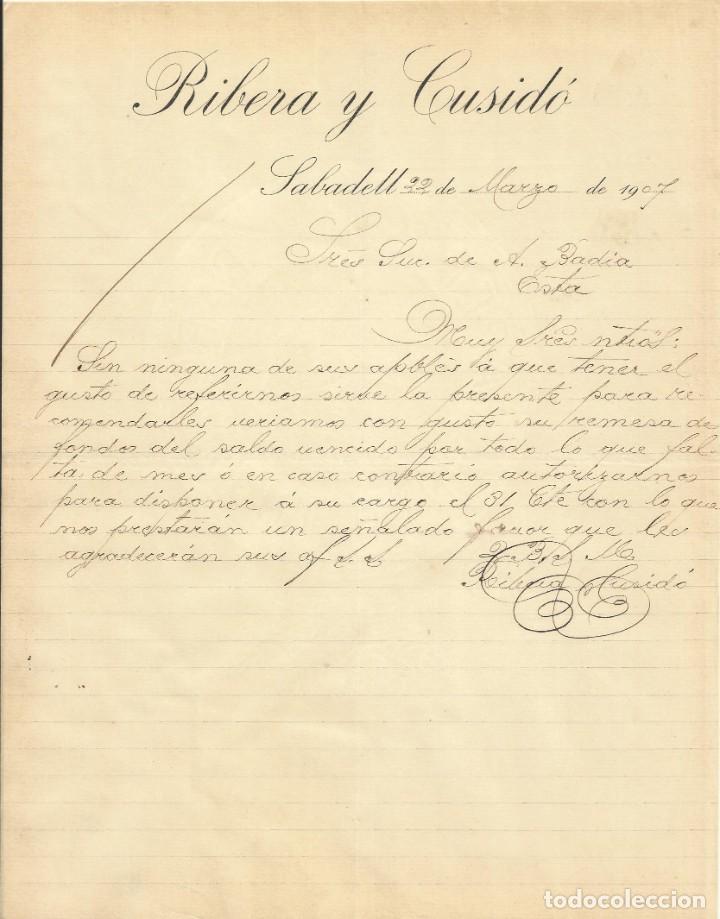 Ribera y Cusidó
Sabadell 22 de Marzo de 1907
Sres Suc. de A. Badia
Esta
Muy Sres ntros:
Sin ninguna de sus apbles á que tener el
gusto de referirnos sirve la presente para re-
comendarles veriamos con gusto su remesa de
fondos del saldo vencido por todo lo que fal-
ta de mes ó en caso contrario autorizarnos
para disponer á su cargo el 31 Cte con lo que
nos prestarán un señalado favor que les
agradecerán sus af S. S.
Q. B. S. M.
Ribera y Cusidó
todocoleccion